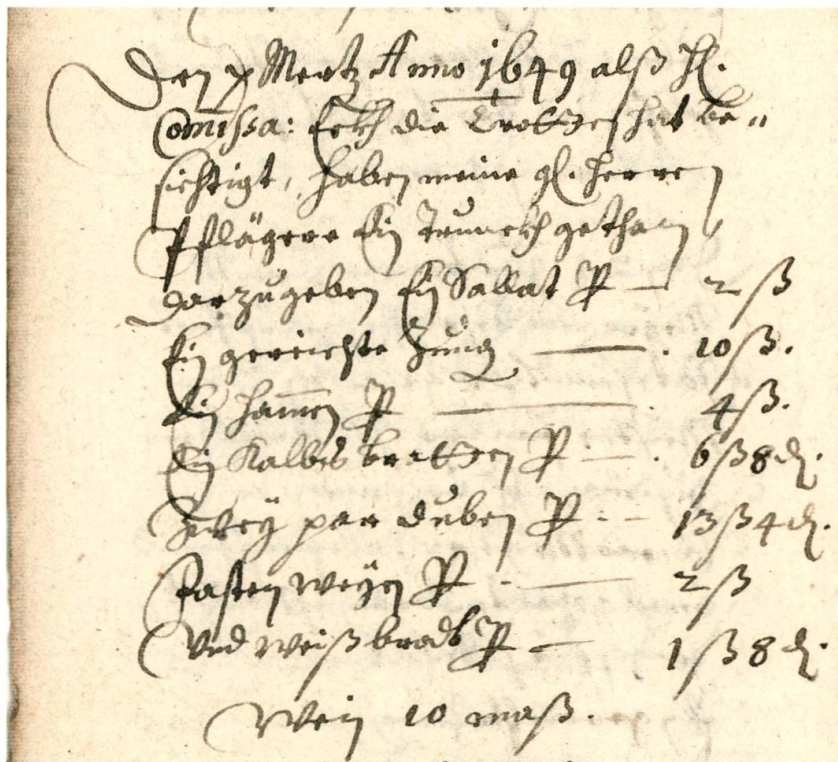 Den x Mertz Anno 1649 alß H.
Comissa: Eckh die Trotten hat be„
sichtigt, haben meine gl. Herren
Pflägere Ein Trunckh gethan,
darzugeben Ein Sallat P — 2 ß
Ein gereichte Zung — 10 ß.
Ein Hamen P — 4 ß.
Ein Kalbs bratten P — 6 ß 8 d.
Zwey par duben P — 13 ß 4 d.
Fasten weyen P — 2 ß
Vnd weißbrodt P — 1 ß 8 d.
Wein 10 maß.